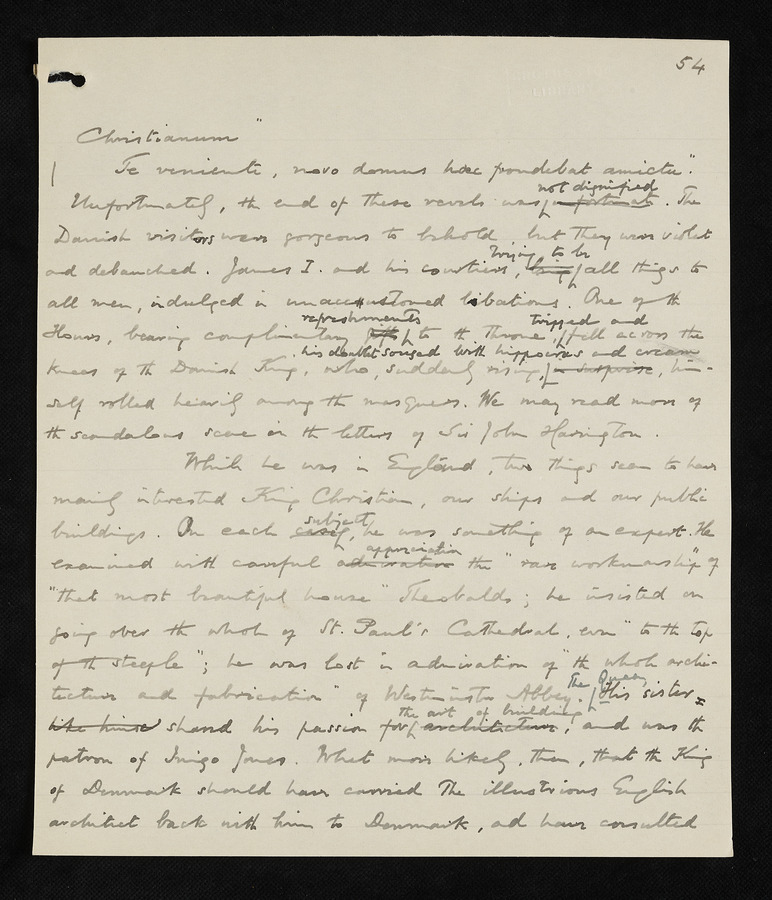 54
Christianum"
Te veniente, novo domus haec frondebat amictu".
not dignified
Unfortunately, the end of these revels was unfortunate. The
Danish visitors were gorgeous to behold, but they were violet
trying to be
and debauched. James I. and his courtiers, being all things to
all men, indulged in unaccustomed libations. One of the
refreshments tripped and
Hours, bearing complimentary gifts to the Throne, fell across the
his doublet soused with hippocras and cream
knees of the Danish King, who, suddenly rising, in surprise, him-
self rolled heavily among the masquers. We may read more of
the scandalous scene in the letters of Sir John Harington.
While he was in England, two things seem to have
mainly interested King Christian, our ships and our public
subject
buildings. On each, he was something of an expert. He
appreciation
examined with careful admiration the "rare workmanship" of
"that most beautiful house" Theobalds; he insisted on
going over the whole of St. Paul's Cathedral, even "to the top
of the steeple"; he was lost in admiration of "the whole archi-
The Queen
tecture and fabrication" of Westminster Abbey. His sister
the art of building
like himself shared his passion for architecture, and was the
patron of Inigo Jones. What more likely, then, that the King
of Denmark should have carried the illustrious English
architect back with him to Denmark, and have consulted